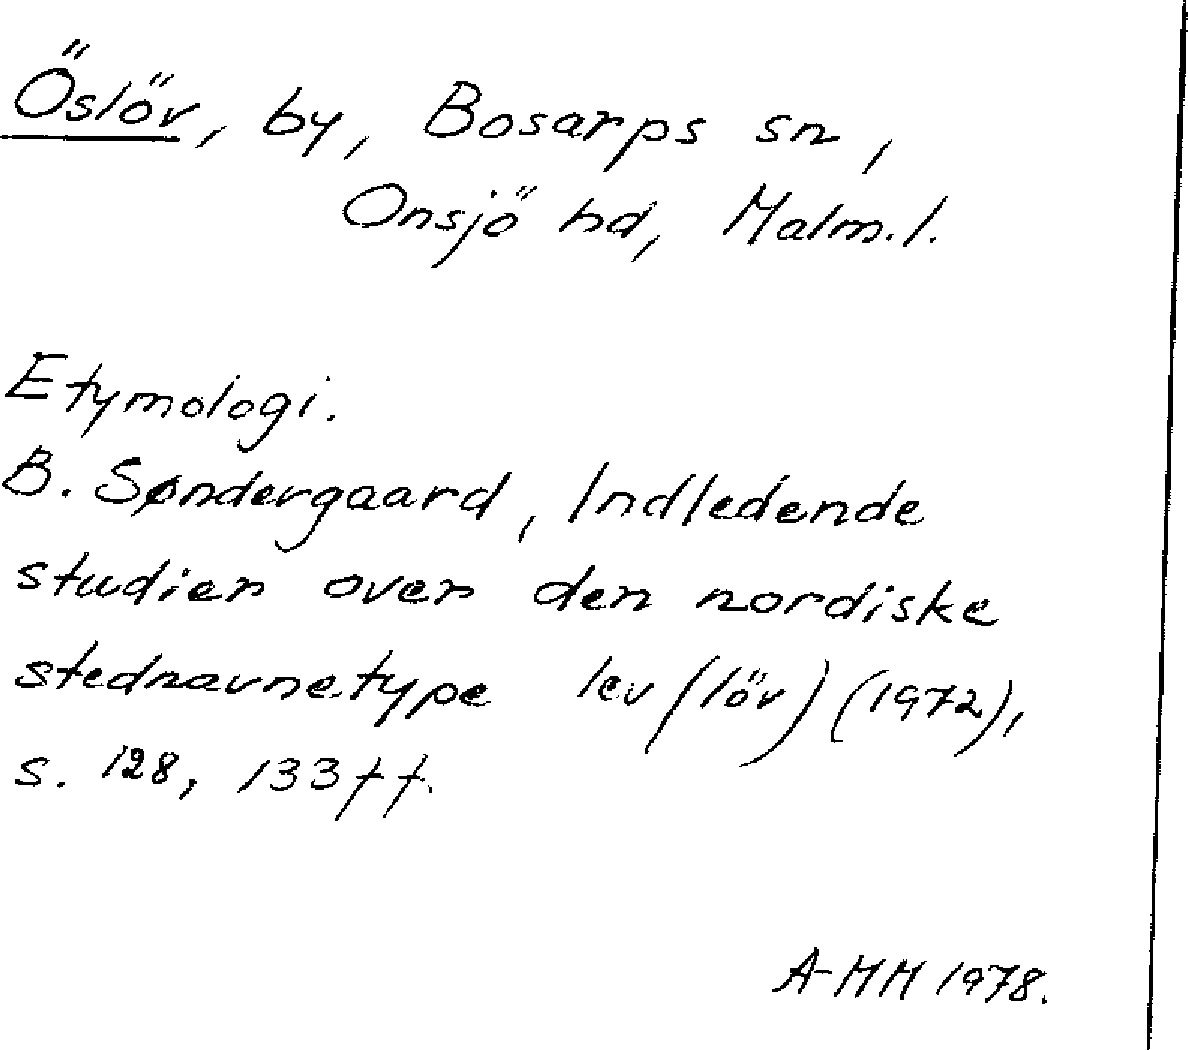 Öslöv, by, Bosarps sn,
Onsjö hd, Malm.l.
Etymologi.
B. Søndergaard, Indledende
studier over den nordiske
stednavnetype lev/löv) (1972),
s. 128, 133ff.
A-MM 1978.